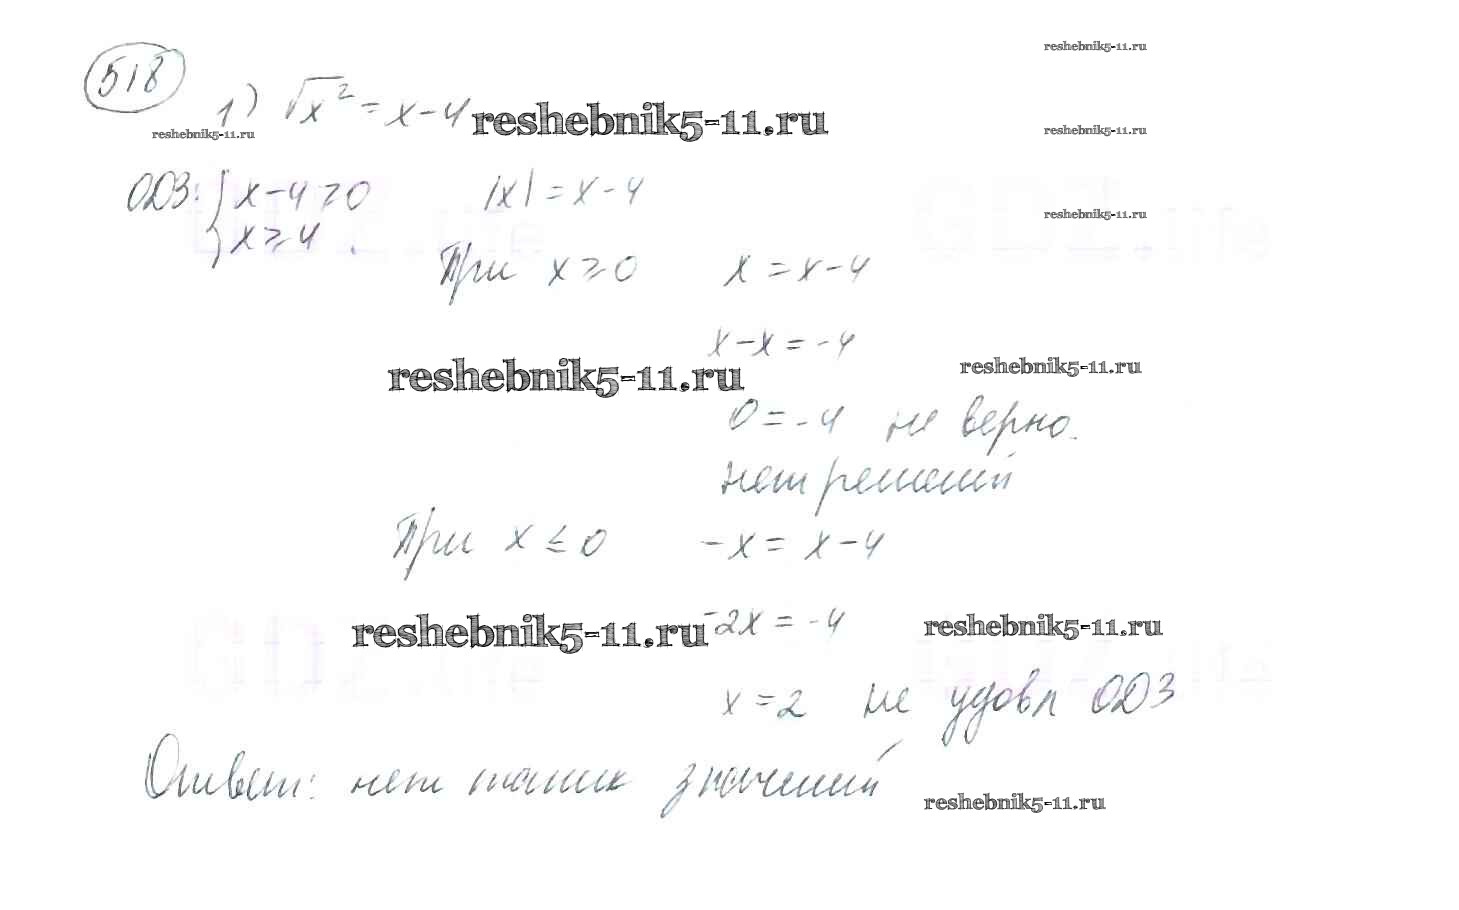 518
reshebnik5-11.ru
1) √x² = x-4
reshebnik5-11.ru
reshebnik5-11.ru
reshebnik5-11.ru
ОДЗ: { x-4 ≥ 0
x ≥ 4
|x| = x-4
reshebnik5-11.ru
При x ≥ 0 x = x-4
x-x = -4
reshebnik5-11.ru
reshebnik5-11.ru
0 = -4 не верно.
нет решений
При x ≤ 0 -x = x-4
reshebnik5-11.ru
-2x = -4
reshebnik5-11.ru
x = 2 не удовл ОДЗ
Ответ: нет таких значений
reshebnik5-11.ru